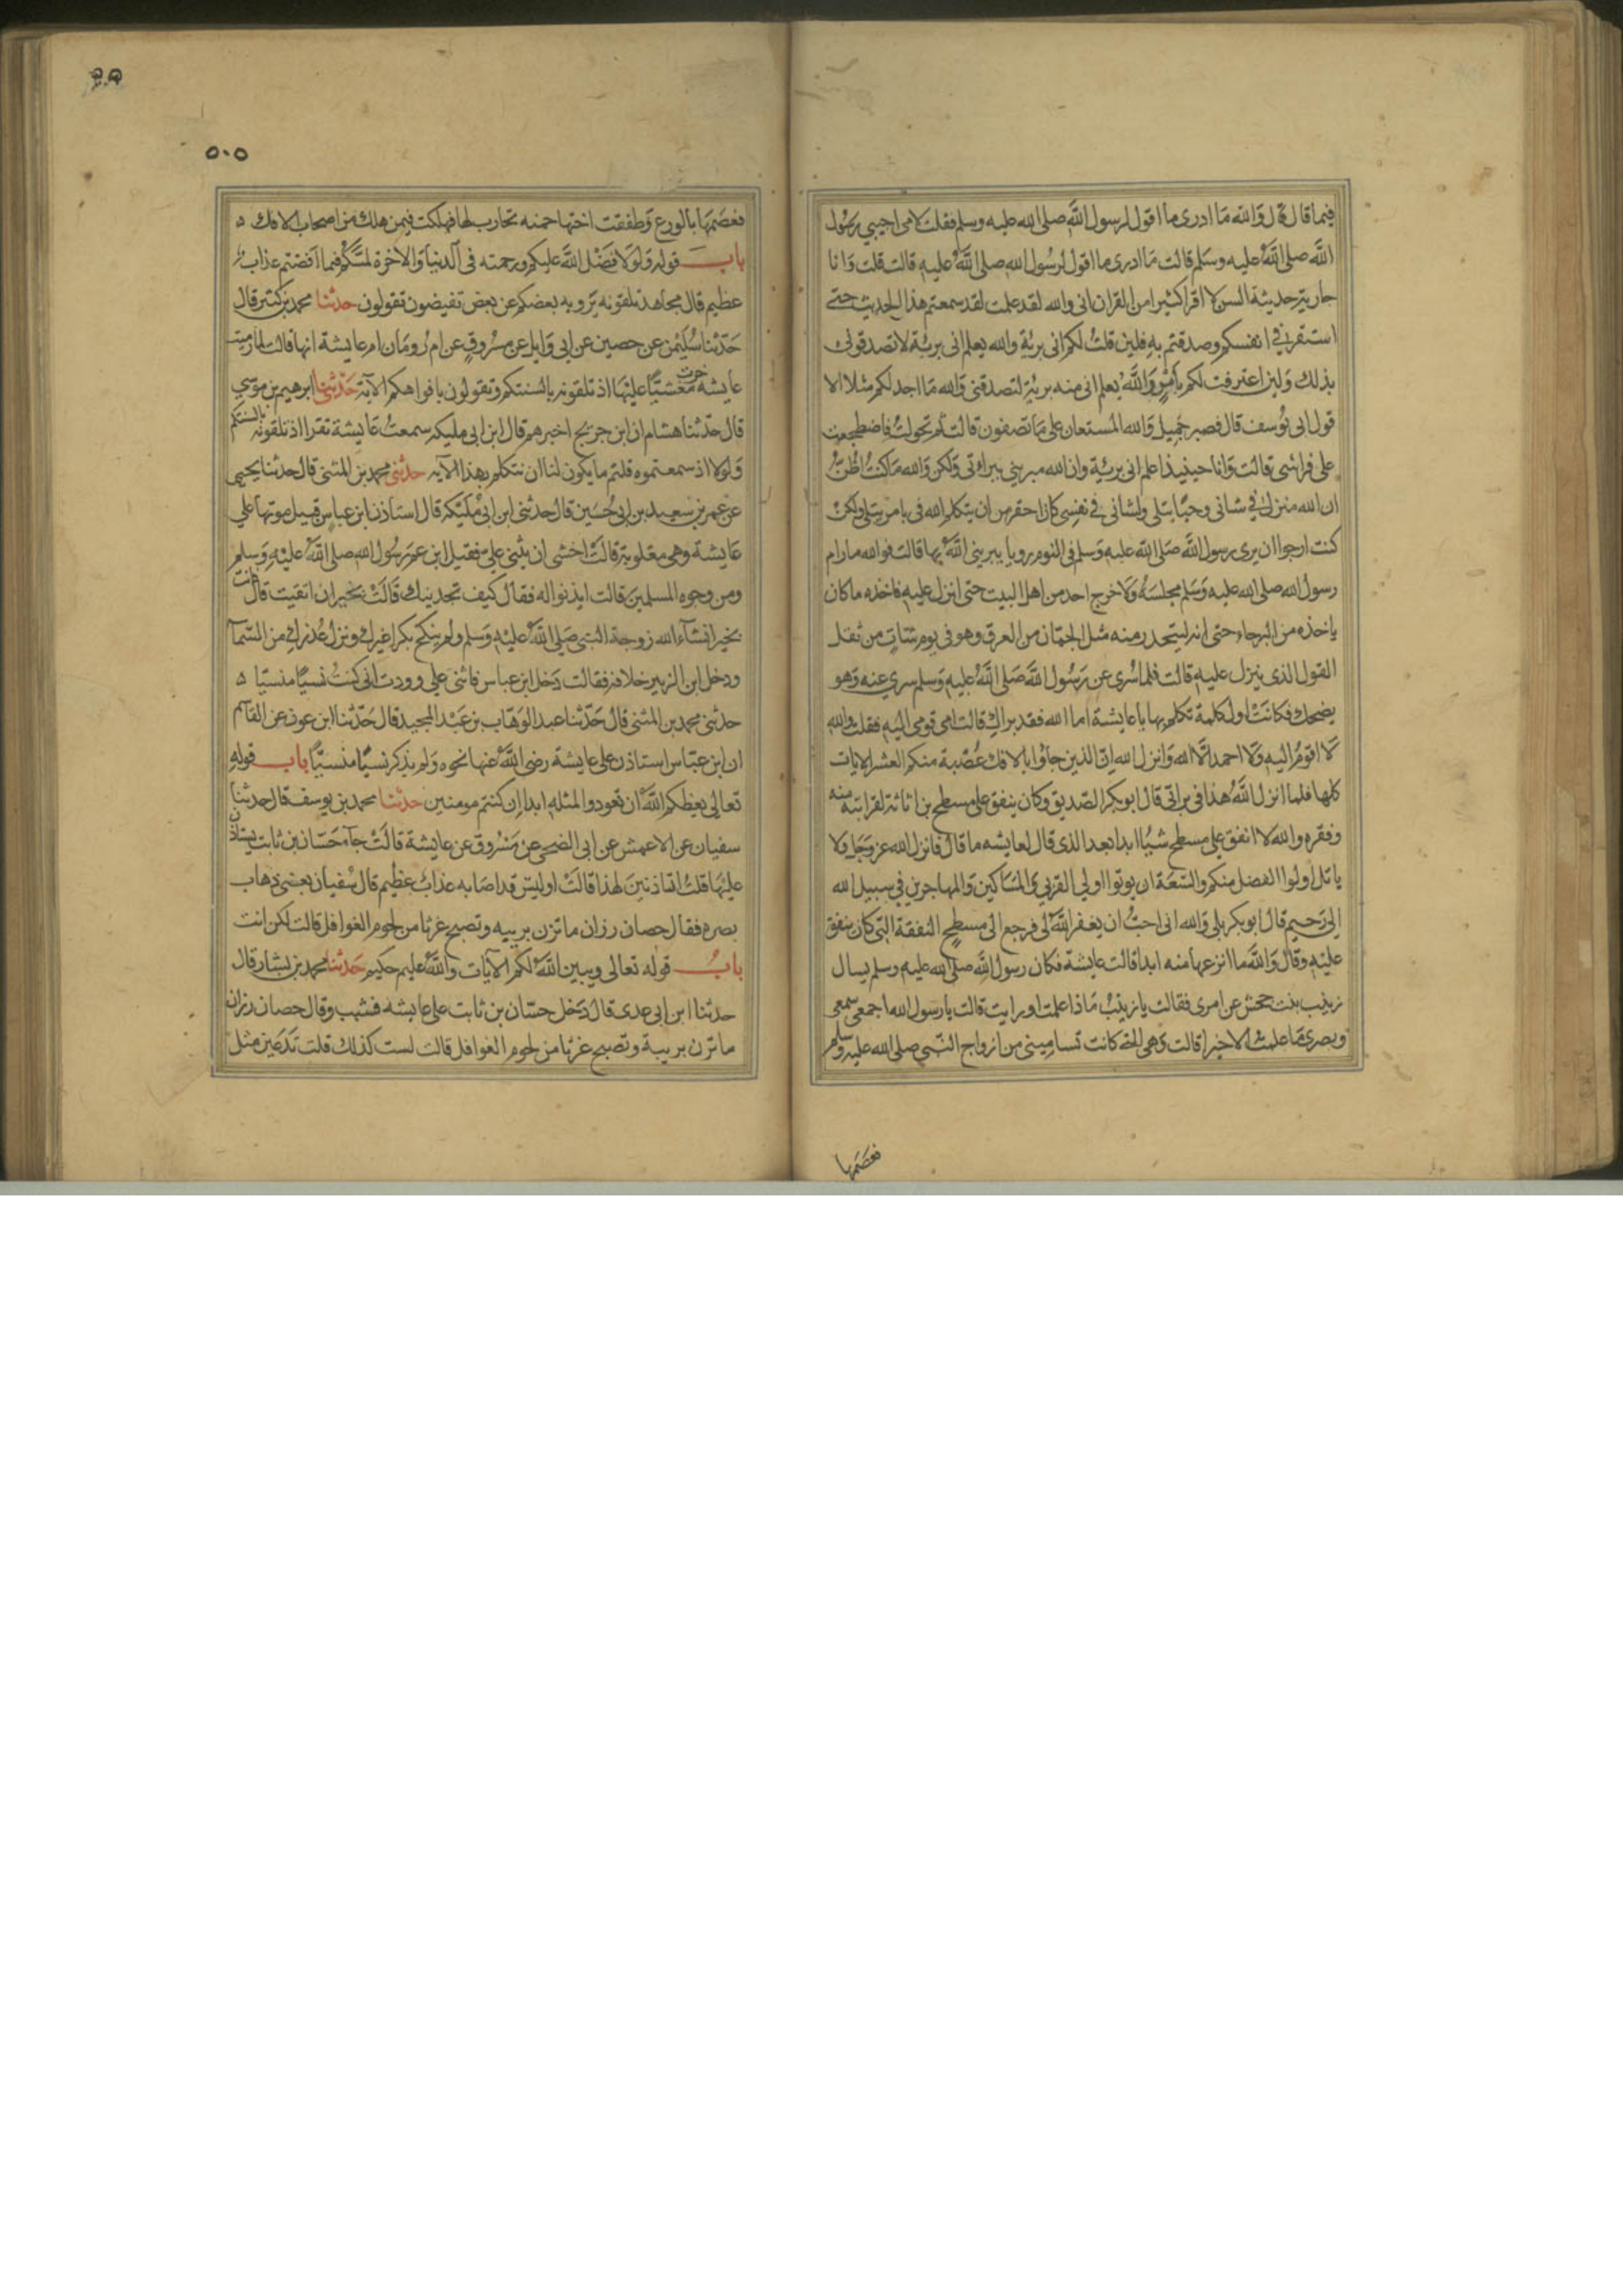 فيما قال قال والله ما ادرى ما اقول لرسول الله صلى الله عليه وسلم فقلت لامى اجيبي رسول
الله صلى الله عليه وسلم قالت ما ادرى ما اقول لرسول الله صلى الله عليه قالت قلت وانا
جارية حديثة السن لا اقرا كثيرا من القران انى والله لقد علمت لقد سمعتم هذا الحديث حتى
استقر فى انفسكم وصدقتم به فلين قلت لكم انى برية والله يعلم انى برية لا تصدقونى
بذلك ولين اعترفت لكم بامر والله يعلم انى منه برية لتصدقنى والله ما اجد لكم مثلا الا
قول ابى يوسف قال فصبر جميل والله المستعان على ما تصفون قالت ثم تحولت فاضطجعت
على فراشى قالت وانا حينيذ اعلم انى برية وان الله مبريني ببراءتى ولكن والله ما كنت اظن
ان الله منزل فى شانى وحيا يتلى ولشانى فى نفسى كان احقر من ان يتكلم الله فى بامر يتلى ولكن
كنت ارجوا ان يرى رسول الله صلى الله عليه وسلم فى النوم رويا يبريني الله بها قالت فوالله ما رام
رسول الله صلى الله عليه وسلم مجلسه ولا خرج احد من اهل البيت حتى انزل عليه فاخذه ما كان
ياخذه من البرحاء حتى انه ليتحدر منه مثل الجمان من العرق وهو فى يوم شات من ثقل
القول الذى ينزل عليه قالت فلما سرى عن رسول الله صلى الله عليه وسلم سرى عنه وهو
يضحك فكانت اول كلمة تكلم بها يا عايشة اما الله فقد براك قالت امى قومى اليه فقلت والله
لا اقوم اليه ولا احمد الا الله وانزل الله ان الذين جاوا بالافك عصبة منكم العشر الايات
كلها فلما انزل الله هذا فى براتى قال ابو بكر الصديق وكان ينفق على مسطح بن اثاثة لقرابته منه
وفقره والله لا انفق على مسطح شيا ابدا بعد الذى قال لعايشه ما قال فانزل الله عز وجل ولا
ياتل اولوا الفضل منكم والسعة ان يوتوا اولي القربي والمساكين والمهاجرين في سبيل الله
الى رحيم قال ابو بكر بلى والله انى احب ان يغفر الله لى فرجع الى مسطح النفقة التى كان ينفق
عليه وقال والله ما انزعها منه ابدا قالت عايشة فكان رسول الله صلى الله عليه وسلم يسال
زينب بنت جحش عن امرى فقالت يا زينب ماذا علمت او رايت قالت يا رسول الله احمى سمعى
وبصرى ما علمت الا خيرا قالت وهى التى كانت تسامينى من ازواج النبى صلى الله عليه وسلم
فعصمها
٥٠٥
فعصمها بالورع وطفقت اختها حمنه تحارب لها فهلكت فيمن هلك من اصحاب الافك ه
باب قوله ولولا فضل الله عليكم ورحمته فى الدنيا والاخرة لمسكم فيما افضتم عذاب
عظيم قال مجاهد تلقونه يرويه بعضكم عن بعض تفيضون تقولون حدثنا محمد بن كثير قال
حدثنا سليمن عن حصين عن ابى وايل عن مسروق عن ام رومان ام عايشة انها قالت لما رميت
عايشه خرت مغشيا عليها اذ تلقونه بالسنتكم وتقولون بافواهكم الاية حدثنا ابرهيم بن موسي
قال حدثنا هشام ان ابن جريج اخبرهم قال ابن ابى مليكه سمعت عايشة تقرا اذ تلقونه بالسنتكم
ولولا اذ سمعتموه قلتم ما يكون لنا ان نتكلم بهذا الايه حدثنى محمد بن المثنى قال حدثنا يحيى
عن عمر بن سعيد بن ابى حسين قال حدثنى ابن ابى مليكه قال استاذن ابن عباس قبيل موتها على
عايشة وهى مغلوبة قالت اخشى ان يثنى على فقيل ابن عم رسول الله صلى الله عليه وسلم
ومن وجوه المسلمين قالت ايذنوا له فقال كيف تجدينك قالت بخير ان اتقيت قال فانت
بخير انشاء الله زوجة النبى صلى الله عليه وسلم ولم ينكح بكرا غيرك ونزل عذرك من السماء
ودخل ابن الزبير خلافه فقالت دخل ابن عباس فاثنى على ووددت انى كنت نسيا منسيا ه
حدثنى محمد بن المثنى قال حدثنا عبد الوهاب بن عبد المجيد قال حدثنا ابن عون عن القاسم
ان ابن عباس استاذن على عايشة رضى الله عنها نحوه ولم يذكر نسيا منسيا باب قوله
تعالى يعظكم الله ان تعودوا لمثله ابدا ان كنتم مومنين حدثنا محمد بن يوسف قال حدثنا
سفيان عن الاعمش عن ابى الضحى عن مسروق عن عايشة قالت جاء حسان بن ثابت يستاذن
عليها قلت اتاذنين لهذا قالت اوليس قد اصابه عذاب عظيم قال سفيان يعنى ذهاب
بصره فقال حصان رزان ما تزن بريبه وتصبح غرثا من لحوم الغوافل قالت لكن انت
باب قوله تعالى ويبين الله لكم الآيات والله عليم حكيم حدثنا محمد بن بشار قال
حدثنا ابن ابى عدى قال دخل حسان بن ثابت على عايشه فشبب وقال حصان رزان
ما تزن بريبة وتصبح غرثا من لحوم الغوافل قالت لست كذلك قلت تدعين مثل